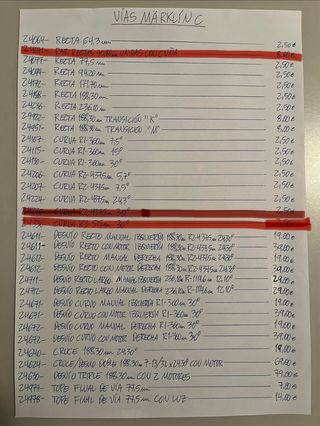 VÍAS MÄRKLIN C
24064 - RECTA 64,3 mm 2,50€
24071 - PAR RECTAS 70,8 mm UNIDAS CON CUÑA 8,00€
24077 - RECTA 77,5 mm 2,50€
24094 - RECTA 94,20 mm 2,50€
24172 - RECTA 171,70 mm 2,50€
24188 - RECTA 188,30 mm 2,50€
24236 - RECTA 236,10 mm 2,50€
24922 - RECTA 188,30 mm TRANSICIÓN "K" 8,00€
24951 - RECTA 188,30 mm TRANSICIÓN "M" 8,00€
24107 - CURVA R1-360 mm 7,5° 2,50€
24115 - CURVA R1-360 mm 15° 2,50€
24130 - CURVA R1-360 mm 30° 2,50€
24206 - CURVA R2-437,5 mm 5,7° 2,50€
24207 - CURVA R2-437,5 mm 7,5° 2,50€
24224 - CURVA R2-437,5 mm 24,3° 2,50€
CURVA R2-437,5 mm 30° 2,50€
30°
24611 - DESVÍO RECTO MANUAL IZQUIERDA 188,30 mm R2-437,5 mm 24,3° 19,00€
24611 - DESVÍO RECTO CON MOTOR IZQUIERDA 188,30 mm R2-437,5 mm 24,3° 39,00€
24612 - DESVÍO RECTO MANUAL DERECHA 188,30 mm R2-437,5 mm 24,3° 19,00€
24612 - DESVÍO RECTO CON MOTOR DERECHA 188,30 mm R2-437,5 mm 24,3° 39,00€
24711 - DESVÍO RECTO LARGO MANUAL IZQUIERDA 236,10 mm 12,10° 29,00€
24712 - DESVÍO RECTO LARGO MANUAL DERECHA 12,10° 29,00€
24671 - DESVÍO CURVO MANUAL IZQUIERDA R1-360 mm 30° 19,00€
24671 - DESVÍO CURVO CON MOTOR IZQUIERDA R1-360 mm 30° 39,00€
24672 - DESVÍO CURVO MANUAL DERECHA R1-360 mm 30° 19,00€
24672 - DESVÍO CURVO CON MOTOR DERECHA R1-360 mm 30° 39,00€
24640 - CRUCE 188,30 mm 24,30° 19,00€
24624 - CRUCE/DESVÍO DOBLE 24,30° CON MOTOR 69,00€
24630 - DESVÍO TRIPLE 188,30 mm CON 2 MOTORES 79,00€
24977 - TOPE FINAL DE VÍA 77,5 mm 7,00€
24978 - TOPE FINAL DE VÍA 77,5 mm CON LUZ 14,00€